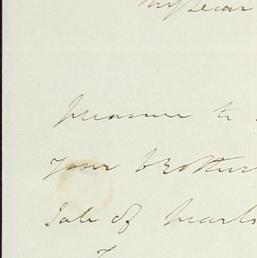 My Dear
pleasure to
your brother
Sale of